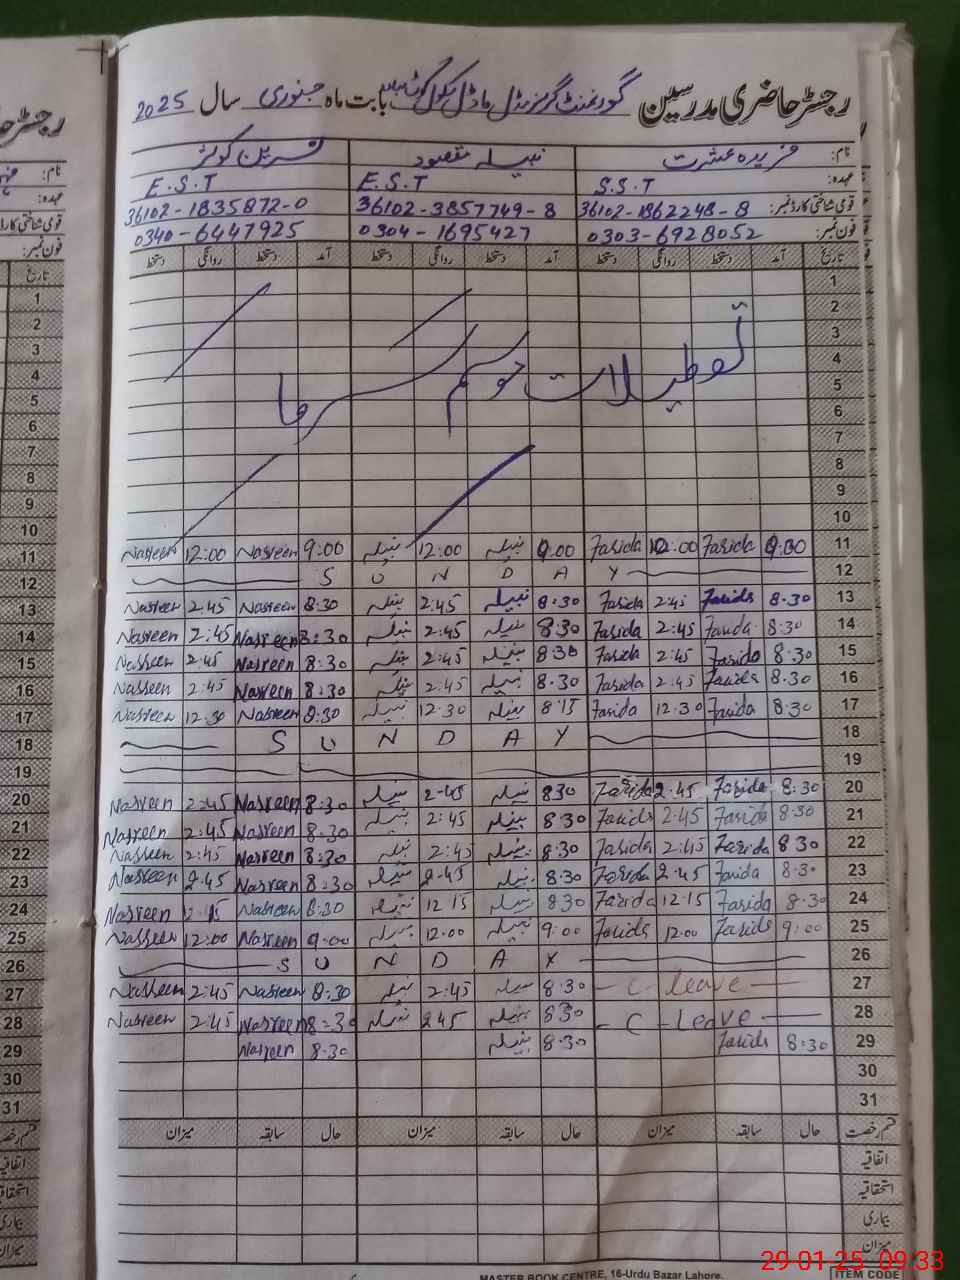 رجسٹر حاضری مدرسین گورنمنٹ گرلز مڈل ماڈل سکول بابت ماہ جنوری سال 2025
نام: فریدہ عشرت نبیلہ مقصود نسرین کوثر
عہدہ: S.S.T E.S.T E.S.T
قومی شناختی کارڈ نمبر: 36102-1862248-8 36102-3857749-8 36102-1835872-0
فون نمبر: 0303-6928052 0304-1695427 0340-6447925
تاریخ آمد دستخط روانگی دستخط آمد دستخط روانگی دستخط آمد دستخط روانگی دستخط
1
2
3
4
تعطیلات موسم سرما
5
6
7
8
9
10
Nasreen 12:00 Nasreen 9:00 نبیلہ 12:00 نبیلہ 9.00 Farida 12:00 Farida 9.00 11
S U N D A Y 12
Nasreen 2:45 Nasreen 8:30 نبیلہ 2:45 نبیلہ 8:30 Farida 2:45 Farida 8.30 13
Nasreen 2:45 Nasreen 8:30 نبیلہ 2:45 نبیلہ 8:30 Farida 2:45 Farida 8:30 14
Nasreen 2:45 Nasreen 8:30 نبیلہ 2:45 نبیلہ 8:30 Farida 2:45 Farida 8:30 15
Nasreen 2:45 Nasreen 8:30 نبیلہ 2:45 نبیلہ 8.30 Farida 2:45 Farida 8.30 16
Nasreen 12:30 Nasreen 8:30 نبیلہ 12.30 نبیلہ 8:15 Farida 12.30 Farida 8:30 17
S U N D A Y 18
19
Nasreen 2:45 Nasreen 8:30 نبیلہ 2-45 نبیلہ 830 Farida 2.45 Farida 8:30 20
Nasreen 2:45 Nasreen 8:30 نبیلہ 2:45 نبیلہ 8:30 Farida 2:45 Farida 8:30 21
Nasreen 2:45 Nasreen 8:30 نبیلہ 2:45 نبیلہ 8:30 Farida 2:45 Farida 8 30 22
Nasreen 2.45 Nasreen 8:30 نبیلہ 2-45 نبیلہ 8:30 Farida 2.45 Farida 8:30 23
Nasreen Nasreen 8:30 نبیلہ 12 15 نبیلہ 8 30 Farida 12.15 Farida 8:30 24
Nasreen 12:00 Nasreen 9:00 نبیلہ 12.00 نبیلہ 9:00 Farida 12:00 Farida 9:00 25
S U N D A Y 26
Nasreen 2:45 Nasreen 8:30 نبیلہ 2:45 نبیلہ 8:30 - C - leave - 27
Nasreen 2:45 Nasreen 8:30 نبیلہ 245 نبیلہ 8:30 - C - Leave - 28
Nasreen 8:30 نبیلہ 8:30 Farida 8:30 29
30
31
قسم رخصت حال سابقہ میزان حال سابقہ میزان حال سابقہ میزان
اتفاقیہ
استحقاقیہ
بیماری
میزان
MASTER BOOK CENTRE, 16-Urdu Bazar Lahore.
ITEM CODE
29-01-25 09:33